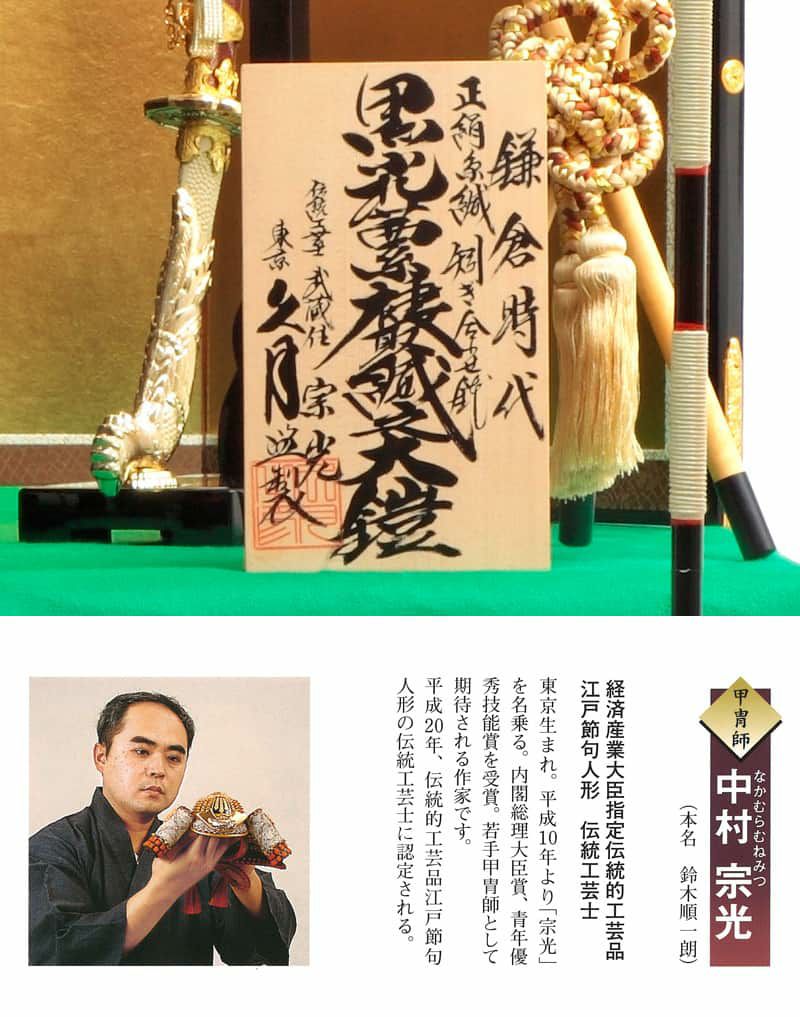 鎌倉時代
正絹糸縅
黒
縅之大鎧
武蔵住 宗光
東京 久月 謹製
甲冑師
中村 宗光
なかむらむねみつ
(本名 鈴木順一朗)
経済産業大臣指定伝統的工芸品
江戸節句人形 伝統工芸士
東京生まれ。平成10年より「宗光」
を名乗る。内閣総理大臣賞、青年優
秀技能賞を受賞。若手甲冑師として
期待される作家です。
平成20年、伝統的工芸品江戸節句
人形の伝統工芸士に認定される。